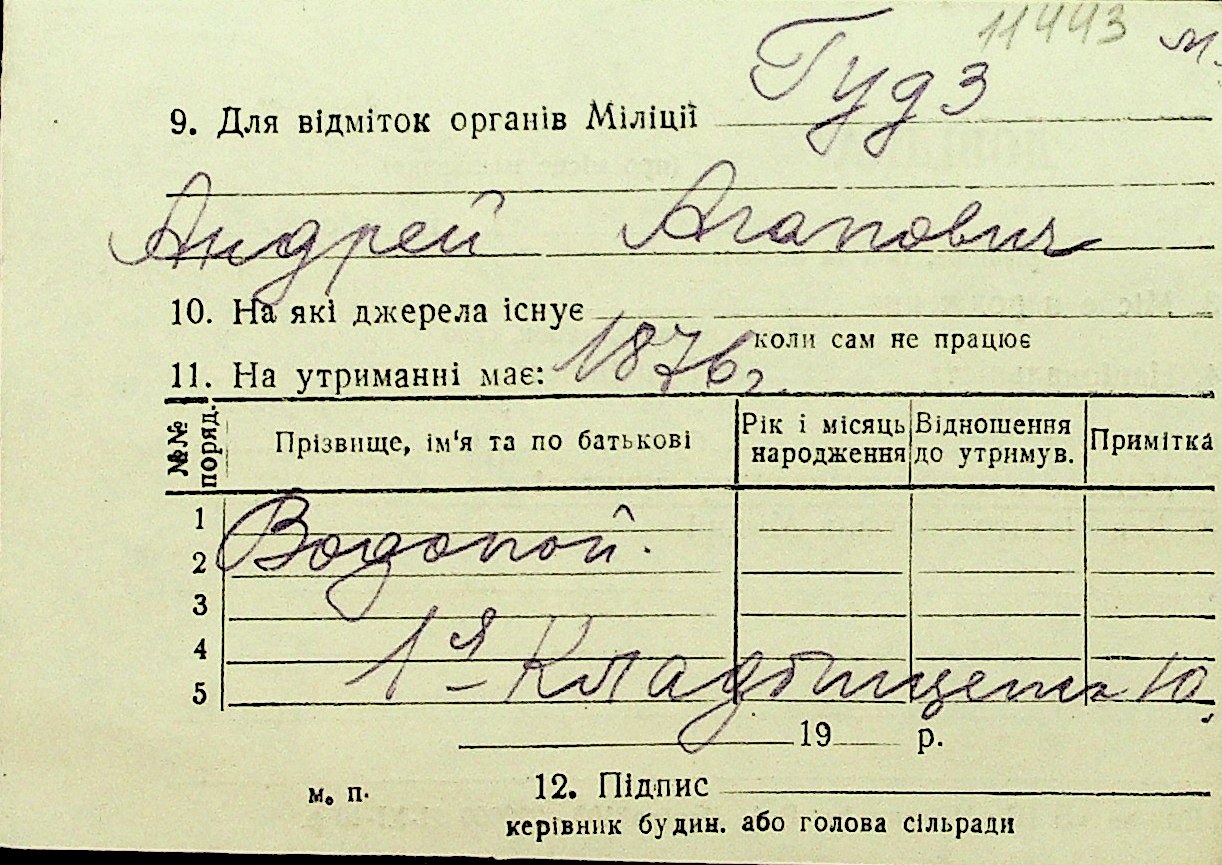 11443 м.
Гудз
9. Для відміток органів Міліції
Андрей Агапович
10. На які джерела існує
коли сам не працює
11. На утриманні має: 1876 г.
№№ поряд. Прізвище, ім'я та по батькові Рік і місяць народження Відношення до утримув. Примітка
1
Водопой.
2
3
4
1я Кладбищенск 10
5
19 р.
м. п. 12. Підпис
керівник будин. або голова сільради